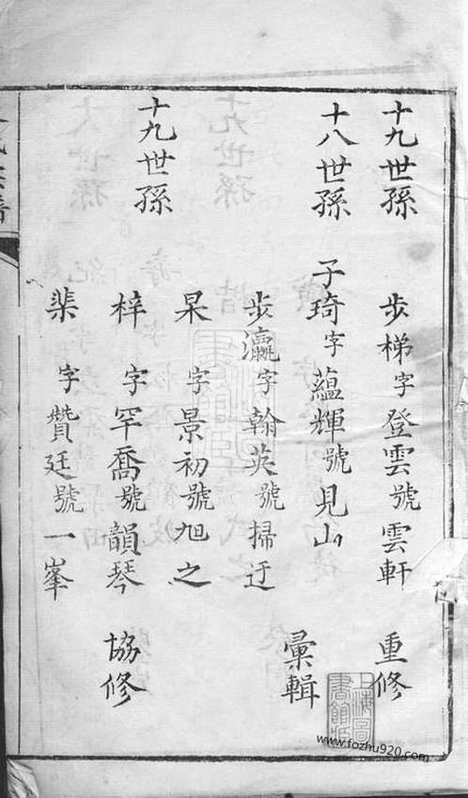 十九世孫 步梯字登雲號雲軒 重修
十八世孫 子琦字蘊輝號見山
彙輯
步瀛字翰英號掃迂
十九世孫 杲 字景初號旭之
梓 字罕喬號韻琴 協修
棐 字贊廷號一峯
上海圖書館藏
www.fozhu920.com